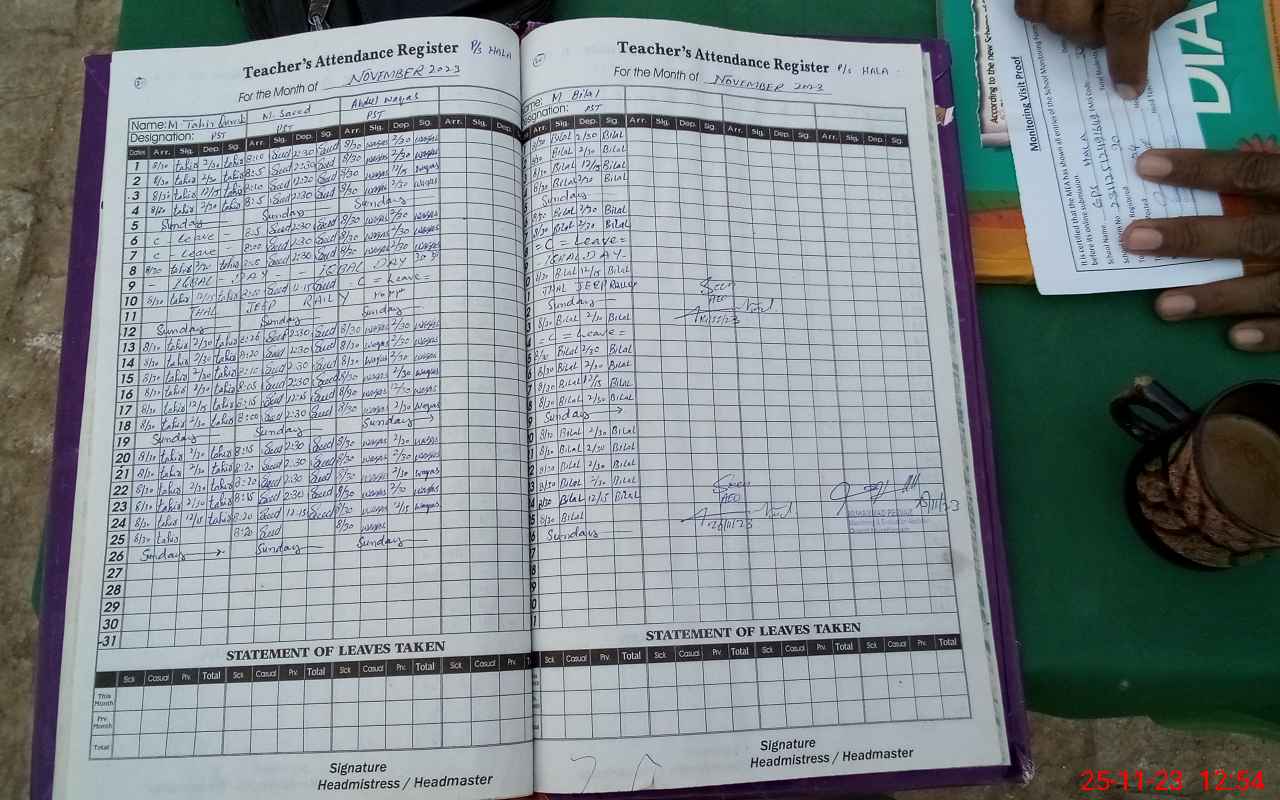 Teacher's Attendance Register P/S HALA
For the Month of NOVEMBER 2023
Name: M Tahir M. Saeed Abdul Waqas
Designation: PST PST PST
Dates Arr. Sig. Dep. Sig. Arr. Sig. Dep. Sig. Arr. Sig. Dep. Sig. Arr. Sig. Dep.
1 8/30 tahir 2/30 tahir 8:10 Saed 2:30 Saed 8/30 waqas 2/30 waqas
2 8/30 tahir 2/30 tahir 8:5 Saed 2:30 Saed 8/30 waqas 2/30 waqas
3 8/30 tahir 12/15 tahir Saed Saed 8/30 waqas 12/15 waqas
4 8/30 tahir 2/30 tahir 8:5 Saed 2:30 Saed 8/30 waqas 2/30 waqas
5 Sunday Sunday Sunday
6 - C - Leave - 8:5 Saed 2:30 Saed 8/30 waqas 2/30 waqas
7 - C - Leave - 8:00 Saed 2:30 Saed 8/30 waqas 2/30 waqas
8 8/30 tahir 2/30 tahir Saed 2:30 Saed 8/30 waqas 2/30 waqas
9 - IQBAL - DAY - - IQBAL DAY
10 8/30 tahir 12/15 tahir Saed 12:15 Saed - C = Leave =
11 THAL JEEP RAILY
12 Sunday Sunday Sunday
13 8/30 tahir 2/30 tahir 8:20 Saed 2:30 Saed 8/30 waqas 2/30 waqas
14 8/30 tahir 2/30 tahir 8:20 Saed 2:30 Saed 8/30 waqas 2/30 waqas
15 8/30 tahir 2/30 tahir 8:10 Saed 2:30 Saed 8/30 waqas 2/30 waqas
16 8/30 tahir 2/30 tahir 8:05 Saed 2:30 Saed 8/30 waqas 2/30 waqas
17 8/30 tahir 12/15 tahir 8:15 Saed 12:15 Saed 8/30 waqas waqas
18 8/30 tahir 2/30 tahir 8:00 Saed 2:30 Saed 8/30 waqas 2/30 waqas
19 Sunday Sunday Sunday
20 8/30 tahir 2/30 tahir 8:15 Saed 2:30 Saed 8/30 waqas 2/30 waqas
21 8/30 tahir 2/30 tahir 8:20 Saed 2:30 Saed 8/30 waqas 2/30 waqas
22 8/30 tahir 2/30 tahir 8:20 Saed 2:30 Saed 8/30 waqas 2/30 waqas
23 8/30 tahir 2/30 tahir 8:15 Saed 2:30 Saed 8/30 waqas 2/30 waqas
24 8/30 tahir 12/15 tahir 8:20 Saed 12:15 Saed 8/30 waqas 12/15 waqas
25 8/30 tahir 8:20 Saed 8/30 waqas
26 Sunday Sunday Sunday
27
28
29
30
31
STATEMENT OF LEAVES TAKEN
Sick Casual Prv. Total Sick Casual Prv. Total Sick Casual Prv. Total Sick Casual Prv.
This Month
Prv. Month
Total
Signature
Headmistress / Headmaster
Teacher's Attendance Register P/S HALA
For the Month of NOVEMBER 2023
Name: M Bilal
Designation: PST
Arr. Sig. Dep. Sig. Arr. Sig. Dep. Sig. Arr. Sig. Dep. Sig. Arr. Sig. Dep. Sig.
8/30 Bilal 2/30 Bilal
8/30 Bilal 2/30 Bilal
8/30 Bilal 12/15 Bilal
8/30 Bilal 2/30 Bilal
Sunday
8/30 Bilal 2/30 Bilal
8/30 Bilal 2/30 Bilal
= C = Leave =
- IQBAL DAY -
8/30 Bilal 12/15 Bilal
THAL JEEP Railey
Sunday
8/30 Bilal 2/30 Bilal
= C = Leave =
8/30 Bilal 2/30 Bilal
8/30 Bilal 2/30 Bilal
8/30 Bilal 12/15 Bilal
8/30 Bilal 2/30 Bilal
Sunday
8/30 Bilal 2/30 Bilal
8/30 Bilal 2/30 Bilal
8/30 Bilal 2/30 Bilal
8/30 Bilal 2/30 Bilal
8/30 Bilal 12/15 Bilal
8/30 Bilal
Sunday
Seen
AEO
Seen
AEO
STATEMENT OF LEAVES TAKEN
Sick Casual Prv. Total Sick Casual Prv. Total Sick Casual Prv. Total Sick Casual Prv. Total
Signature
Headmistress / Headmaster
According to the new
Monitoring Visit Proof
It is certified that the MEA has shown all entries of the School Monitoring Form
before its online submission
School Name GPS HALA
DIA
25-11-23 12:54